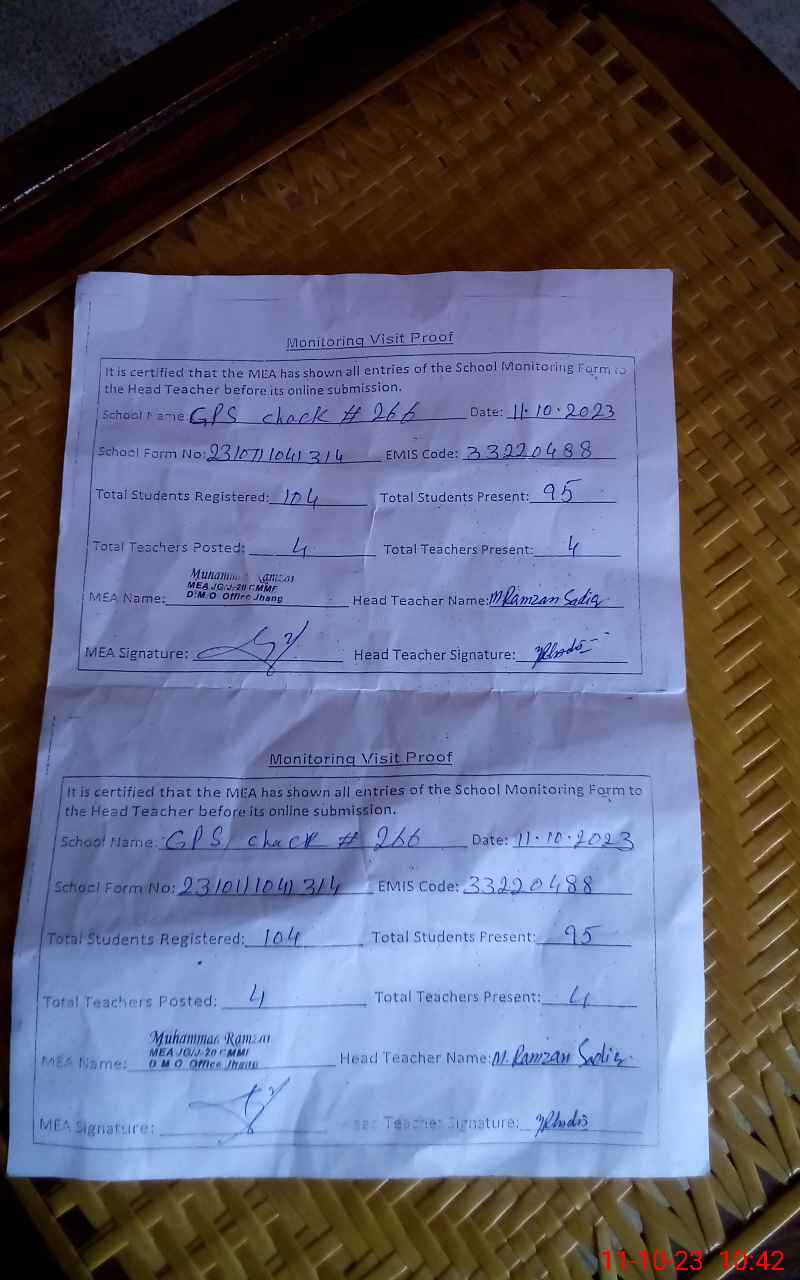 Monitoring Visit Proof
It is certified that the MEA has shown all entries of the School Monitoring Form to
the Head Teacher before its online submission.
School Name GPS chack # 266 Date: 11.10.2023
School Form No: EMIS Code: 33220488
Total Students Registered: 104 Total Students Present: 95
Total Teachers Posted: 4 Total Teachers Present: 4
Muhammad Ramzan
MEA JG/J-20 CMMF
D.M.O Office Jhang
MEA Name: Head Teacher Name: M Ramzan Sadiq
MEA Signature: Head Teacher Signature:
Monitoring Visit Proof
It is certified that the MEA has shown all entries of the School Monitoring Form to
the Head Teacher before its online submission.
School Name: GPS chack # 266 Date: 11.10.2023
School Form No: EMIS Code: 33220488
Total Students Registered: 104 Total Students Present: 95
Total Teachers Posted: 4 Total Teachers Present: 4
Muhammad Ramzan
MEA JG/J-20 CMMF
D M O Office Jhang
MEA Name: Head Teacher Name: M. Ramzan Sadiq
MEA Signature: Head Teacher Signature:
11-10-23 10:42